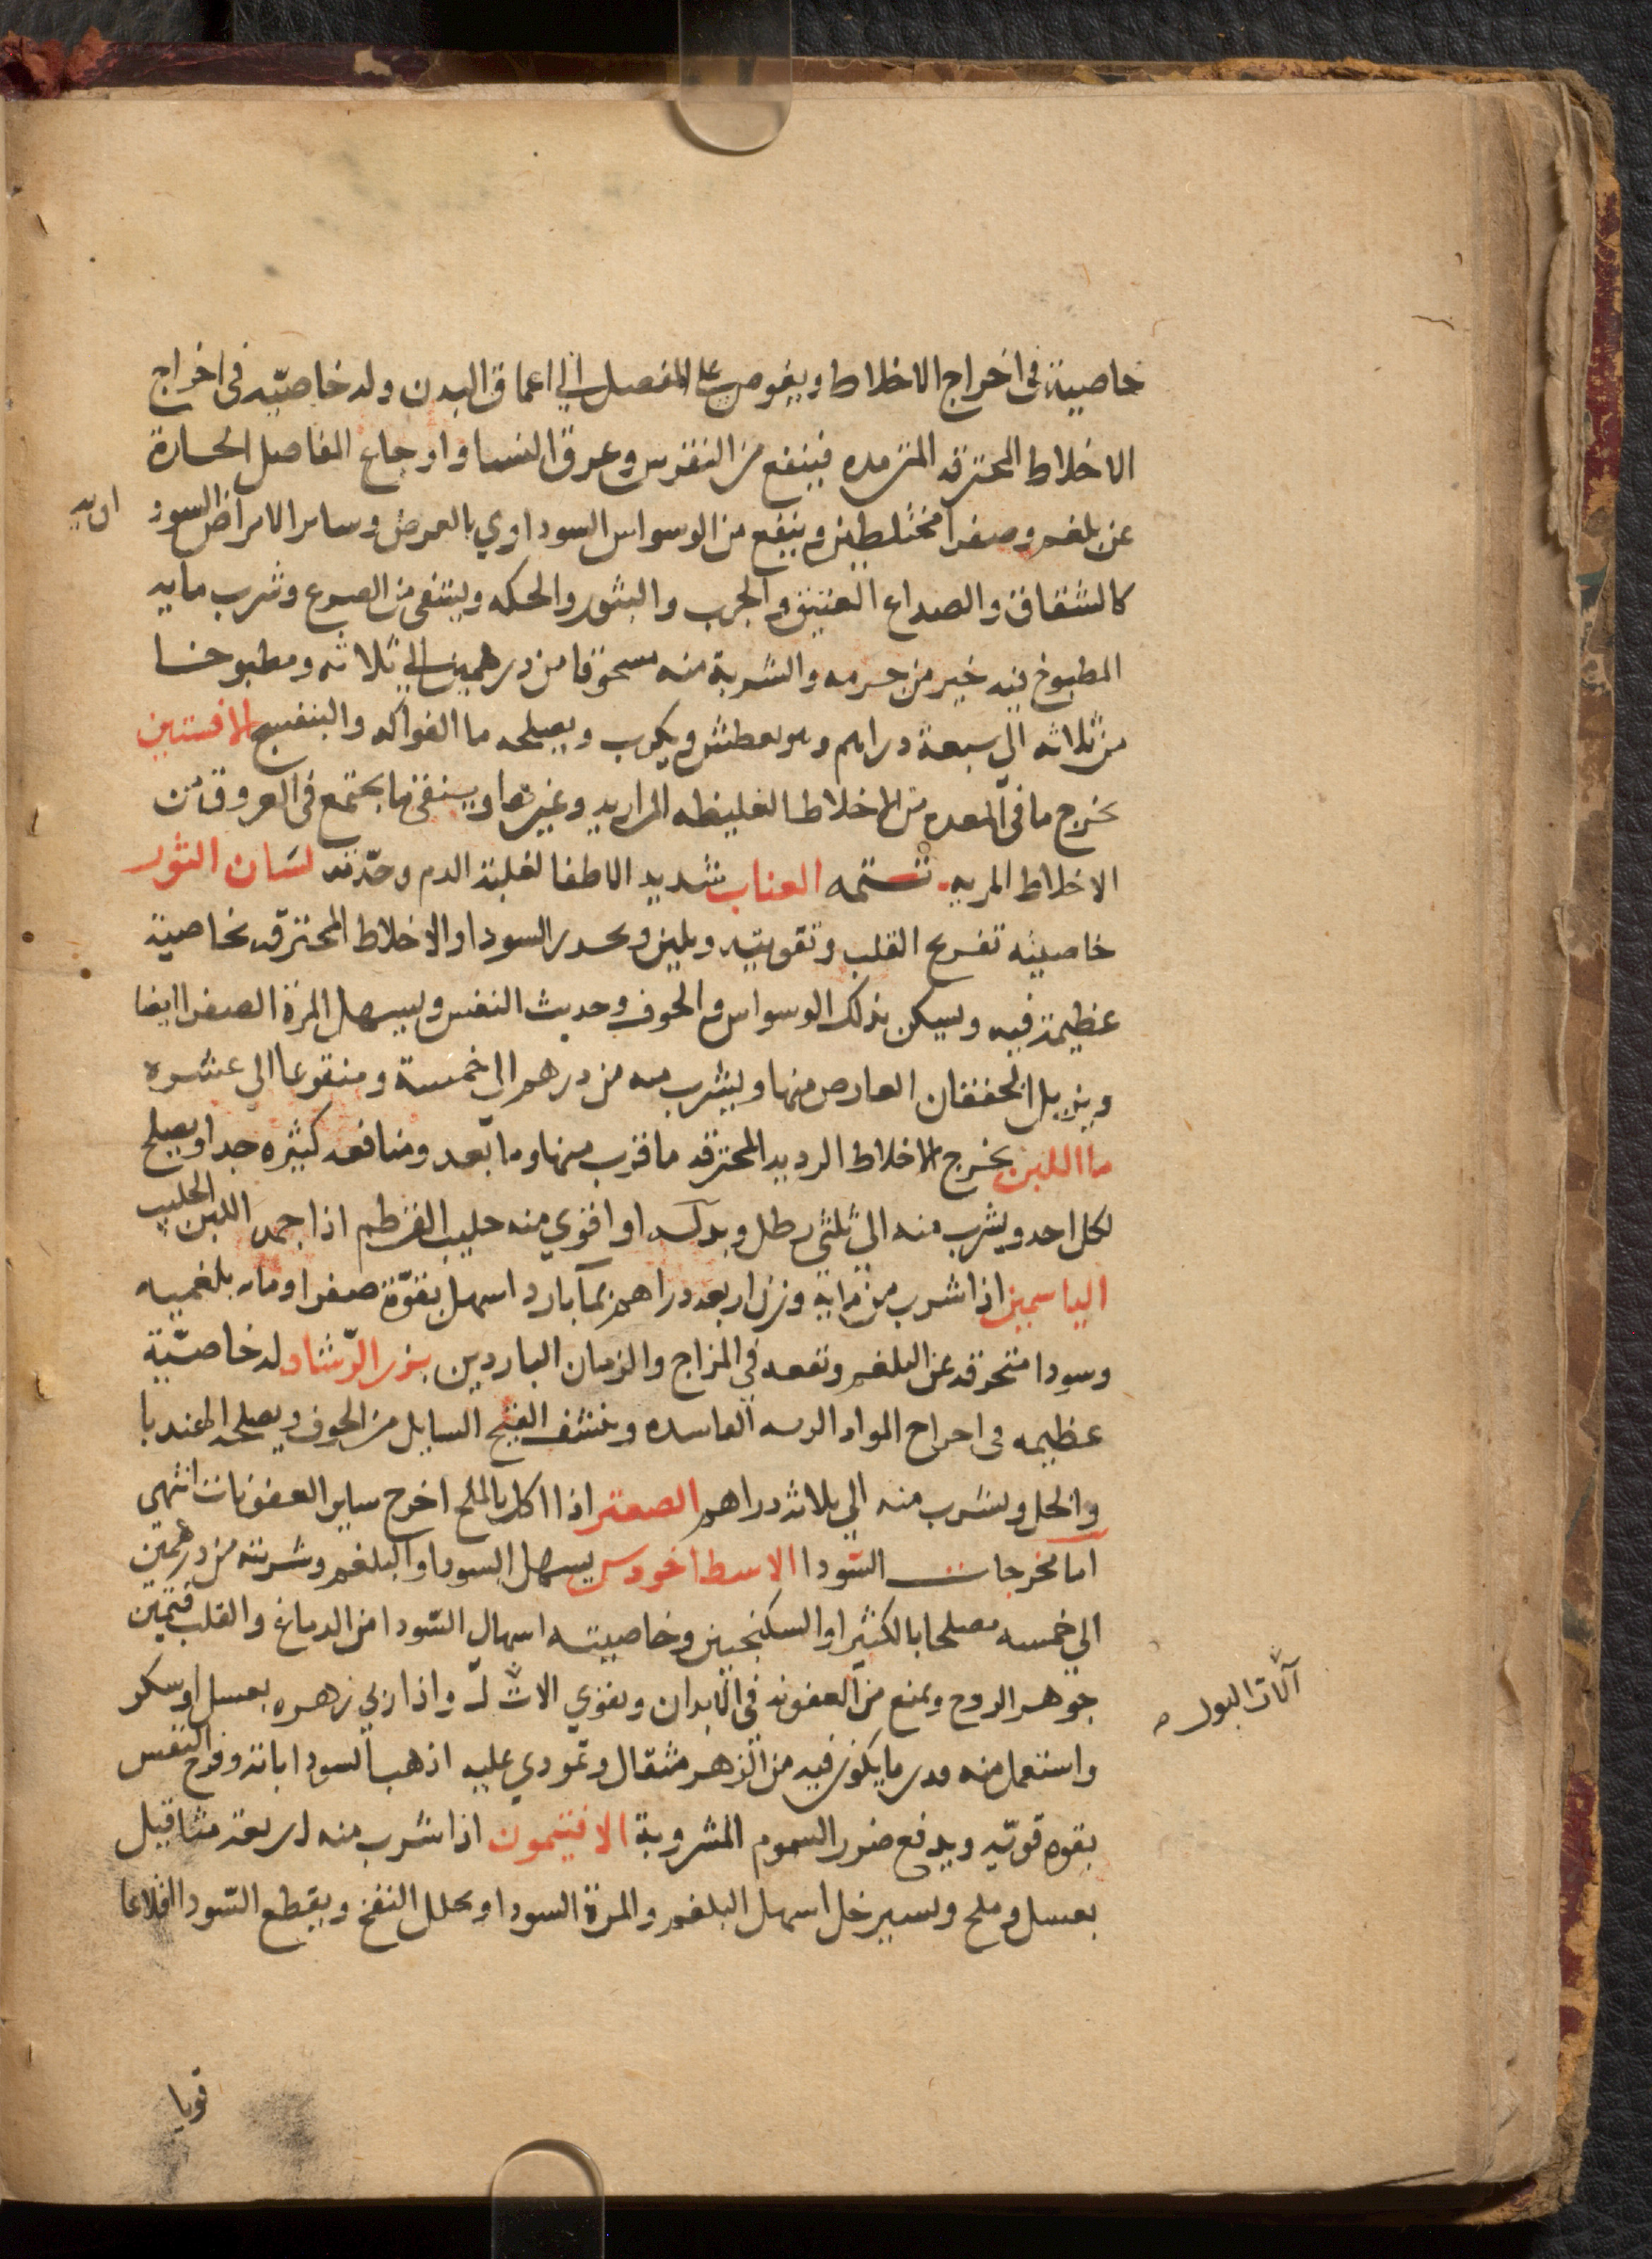 خاصية في اخراج الاخلاط ويغوص على المفصل الي اعماق البدن وله خاصيه في اخراج
الاخلاط المحترقه المترمده فينفع من النقرس وعرق النسا واوجاع المفاصل الحارة
عن بلغم وصفرا مختلطين وينفع من الوسواس السوداوي بالعرض وساير الامراض السود
اويه
كالشقاق والصداع العتيق والجرب والبثور والحكه وينقي من الصرع وشرب مايه
المطبوخ فيه خير من جرمه والشربة منه مسحوقا من درهمين الي ثلاثه ومطبوخا
من ثلاثه الي سبعة دراهم وهو يعطش ويكرب ويصلحه ما الفواكه والبنفسج الافسنتين
يخرج ما في المعده من الاخلاط الغليظه المراريه وغيرها وينقي ما يجتمع في العروق من
الاخلاط المريه تتمه العناب شديد الاطفا لغلبة الدم وحدته لسان الثور
خاصيته تفريح القلب وتقويته ويلين ويحدر السودا والاخلاط المحترقه بخاصية
عظيمة فيه ويسكن بذلك الوسواس والخوف وحديث النفس ويسهل المرة الصفرا ايضا
ويزيل الخفقان العارض منها ويشرب منه من درهم الي خمسة ومنقوعا الي عشره
ما اللبن يخرج الاخلاط الرديه المحترقه ما قرب منها وما بعد ومنافعه كثيره جدا ويصلح
لكل احد ويشرب منه الي ثلثي رطل وبدله او اقوي منه حليب القرطم اذا جمد اللبن الحليب
الياسمين اذا شرب من مايه وزن اربعه دراهم بمآ بارد اسهل بقوة صفرا وماده بلغميه
وسودا متحرقه عن البلغم ونفعه في المزاج والزمان الباردين بزر الرشاد له خاصية
عظيمه في اخراج المواد الرديه الفاسده وينشف القيح السايل من الجوف ويصلحه الهندبا
والخل ويشرب منه الي ثلاثه دراهم الصعتر اذا اكل بالملح اخرج ساير العفونات انتهي
اما مخرجات السودا الاسطاخودس يسهل السودا والبلغم وشربته من درهمين
الي خمسه مصلحا بالكثيرا او السكنجبين وخاصيته اسهال السودا من الدماغ والقلب فيمتن
جوهر الروح ويمنع من العفونه في الابدان ويقوي الات واذا ربي زهره بعسل او سكر
آلات البول
واستعمل منه قدر ما يكون فيه من الزهر مثقال وتمودي عليه اذهب السودا بانه وفرح النفس
بقوه قويه ويدفع ضرر السموم المشروبة الافتيمون اذا شرب منه اربعة مثاقيل
بعسل وملح ويسير خل اسهل البلغم والمرة السودا وحلل النفخ ويقطع السودا اقلاعا
قويا